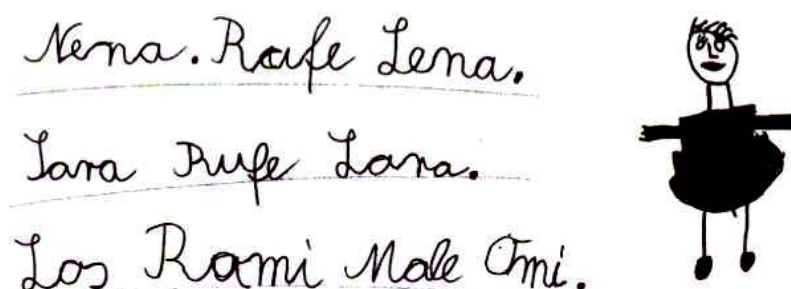 Nena. Rufe Lena.
Rufe Lara.
Los Rami Male Omi.